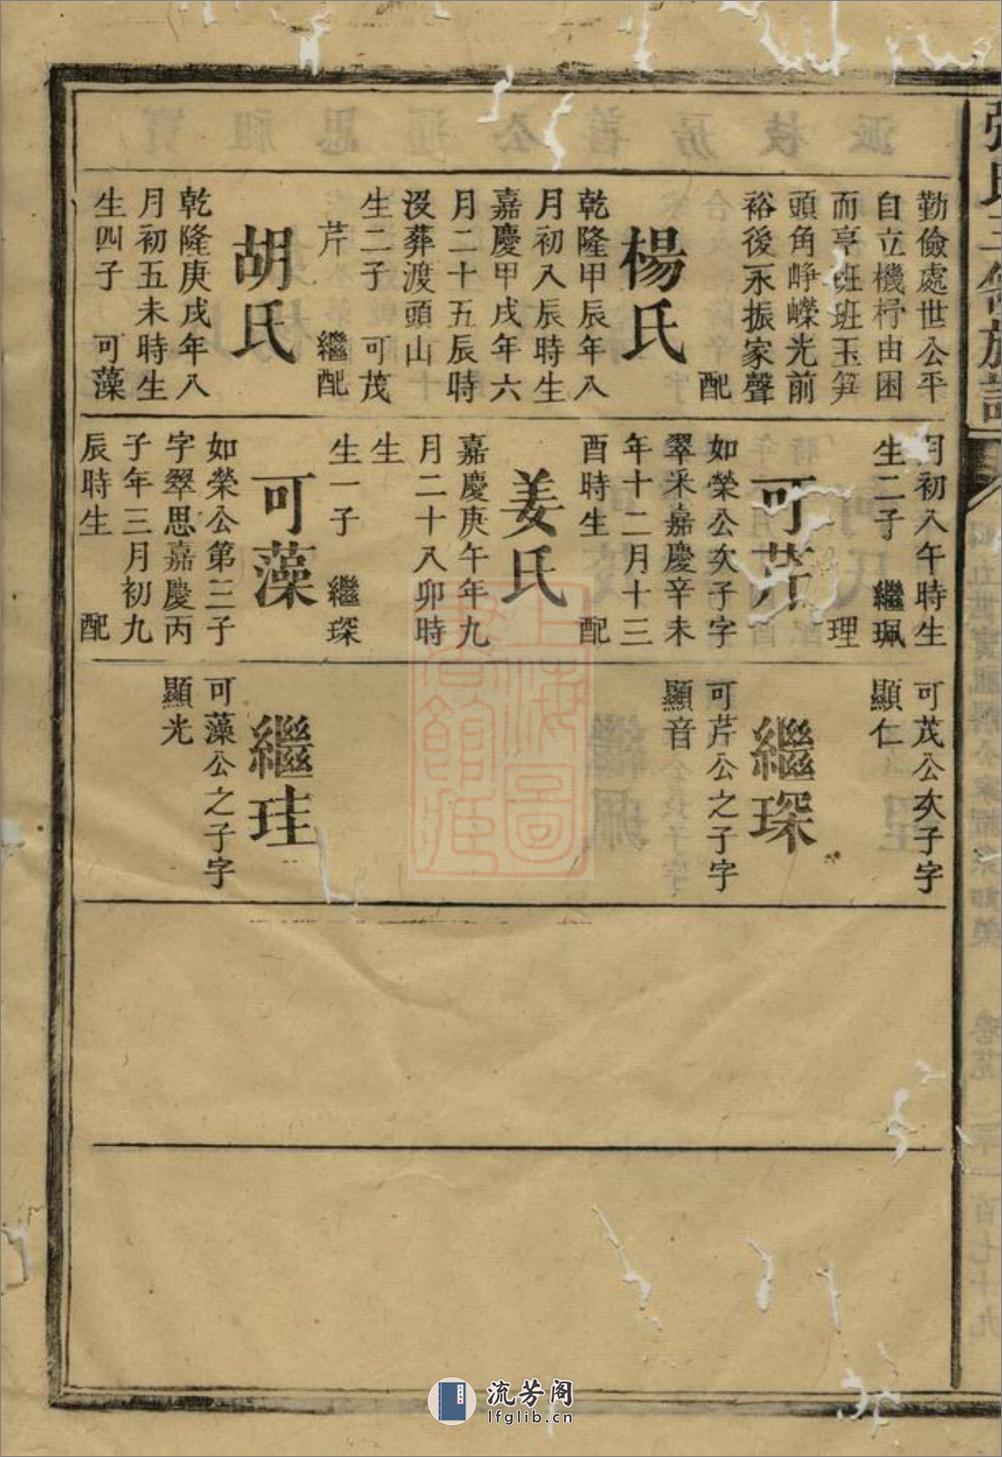 勤儉處世公平
自立機杼由困
而亨班班玉笋
頭角崢嶸光前
裕後永振家聲
配
楊氏
乾隆甲辰年八
月初八辰時生
嘉慶甲戌年六
月二十五辰時
沒葬渡頭山
生二子 可茂
芹 繼配
胡氏
乾隆庚戌年八
月初五未時生
生四子 可藻
月初八午時生
生二子 繼珮
理
可芹
如榮公次子字
翠采嘉慶辛未
年十二月十三
酉時生 配
姜氏
嘉慶庚午年九
月二十八卯時
生
生一子 繼琛
可藻
如榮公第三子
字翠思嘉慶丙
子年三月初九
辰時生 配
可茂公次子字
顯仁
繼琛
可芹公之子字
顯音
繼珪
可藻公之子字
顯光
上海圖書館藏
流芳阁
lfglib.cn